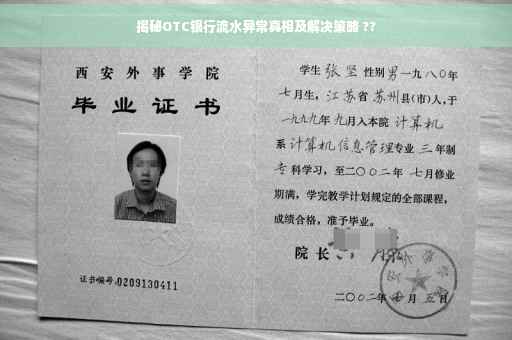 揭秘OTC银行流水异常真相及解决策略 ??
西安外事学院
毕业证书
证书编号:0209130411
学生 张坚 性别 男 一九八〇年
七月生, 江苏省 苏州县(市)人,于
一九九九年 九月入本院 计算机
系 计算机信息管理专业 三 年制
专科学习,至二〇〇二年 七月修业
期满,学完教学计划规定的全部课程,
成绩合格,准予毕业。
院长
二〇〇二年 月 五日